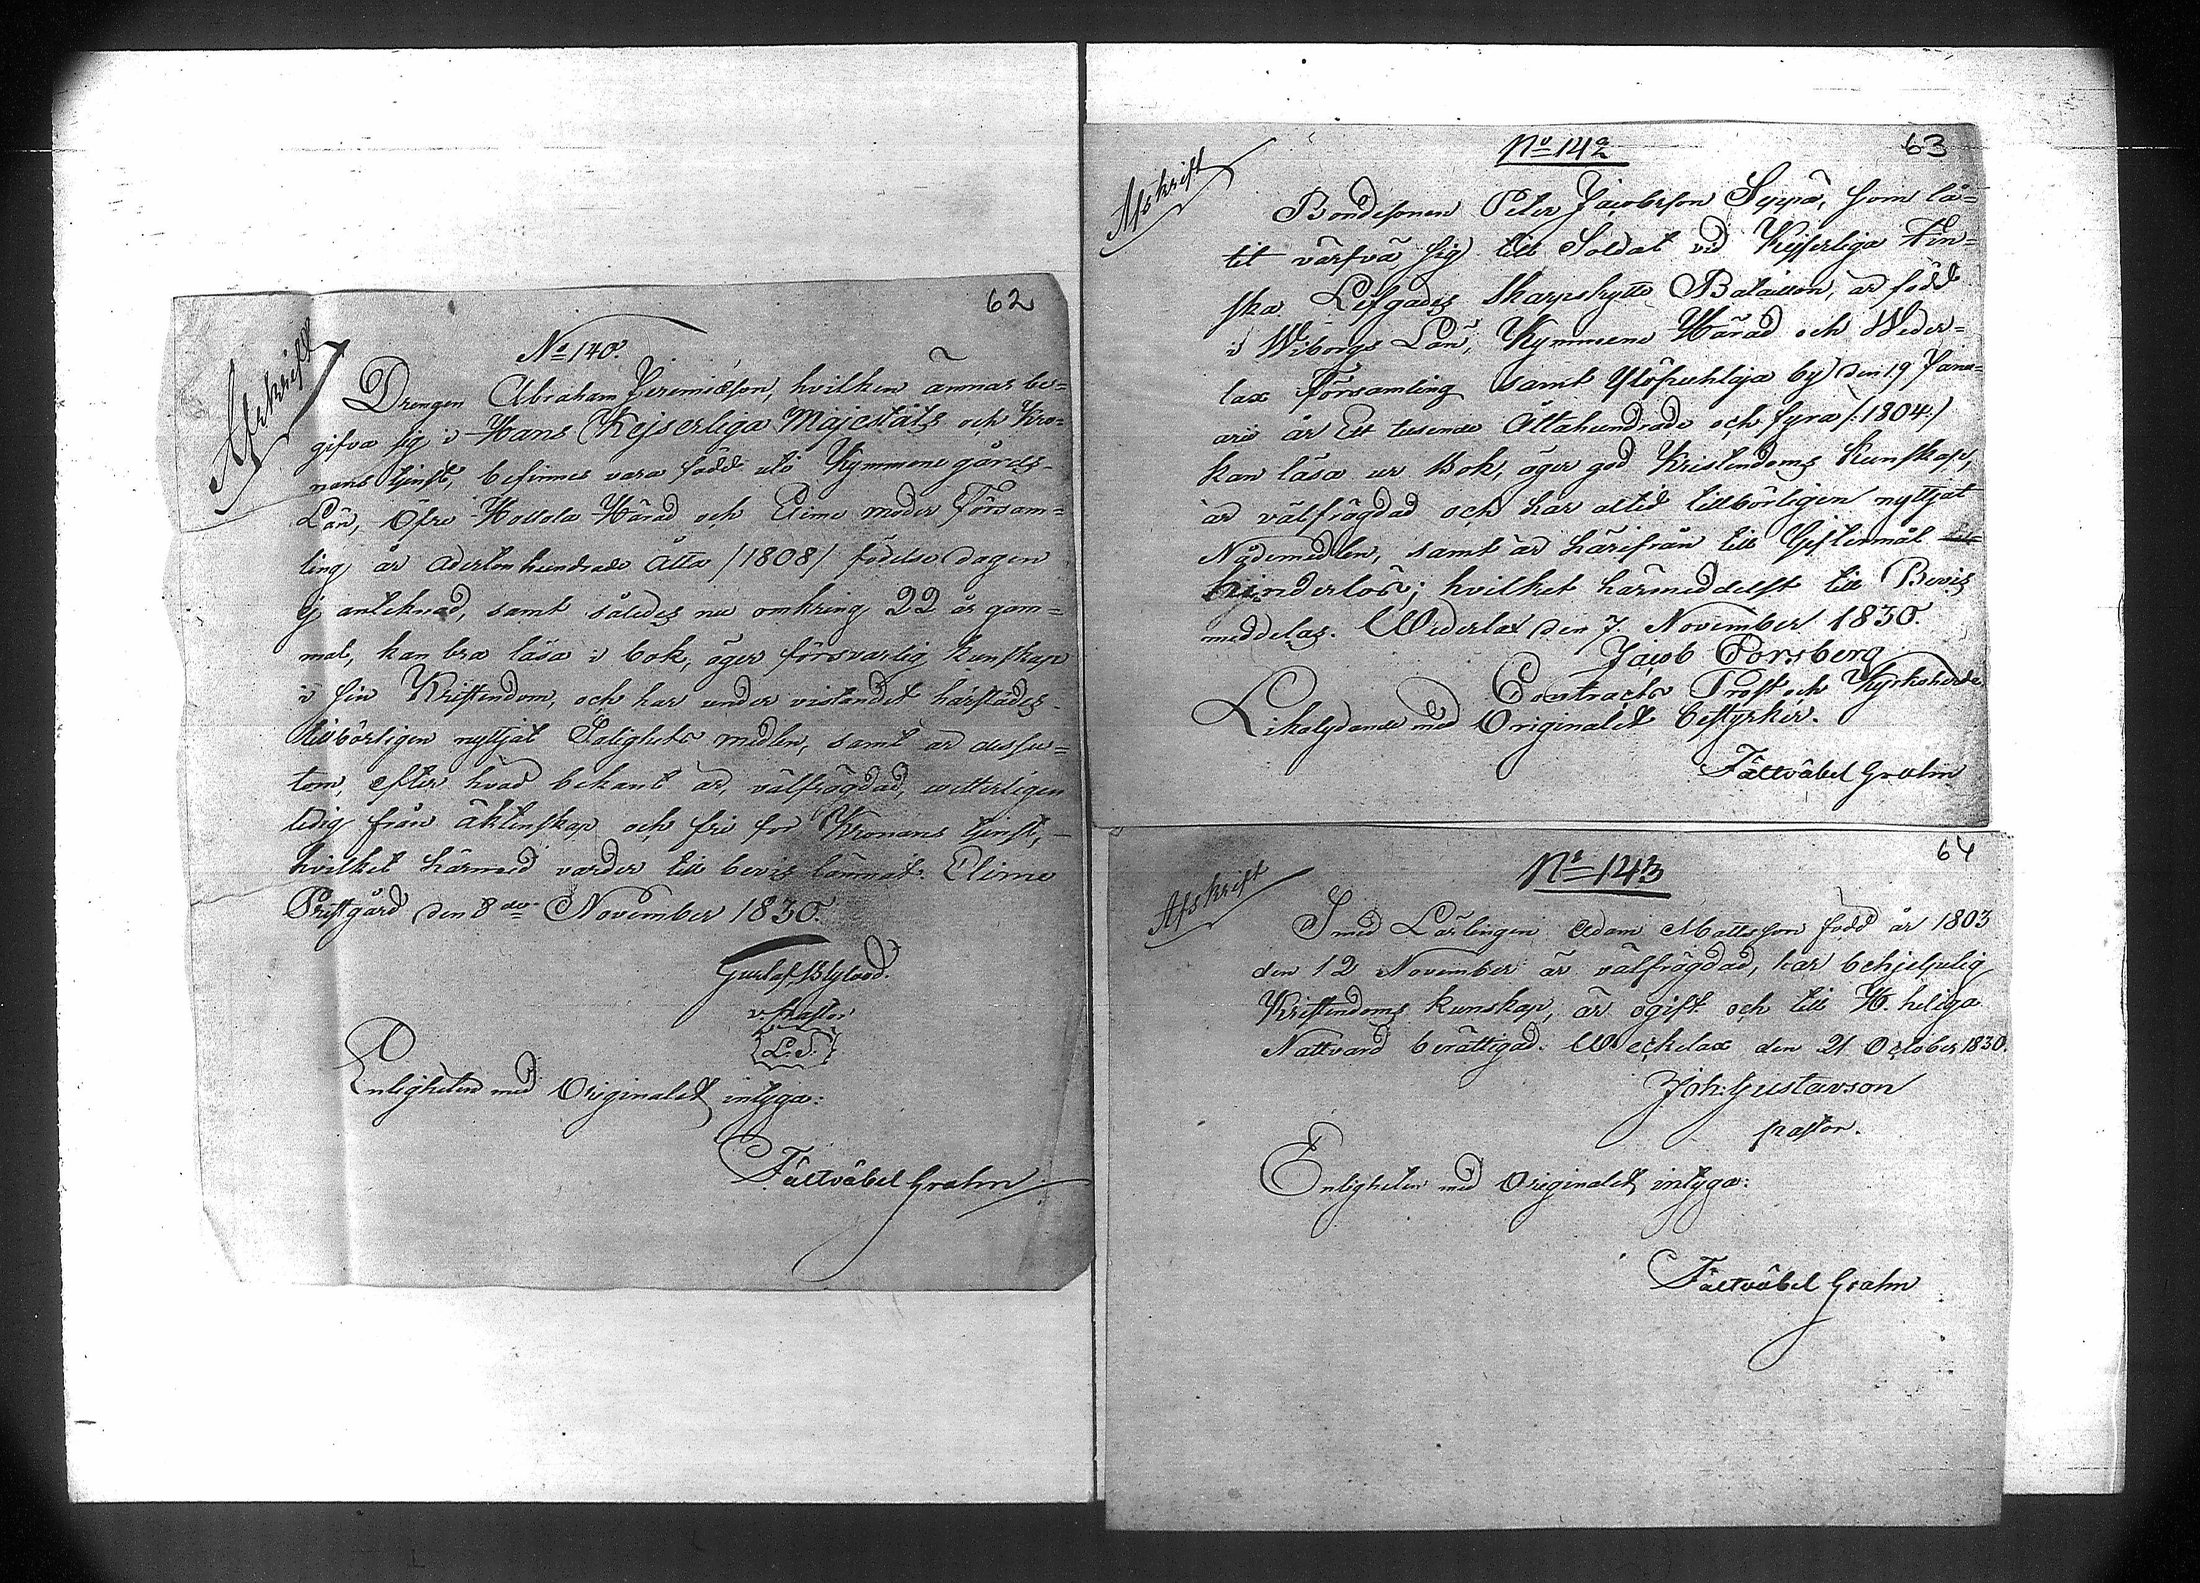 62
Afskrift
No 140.
Drengen Abraham Jeremiæson, hvilken ämnar be=
gifva sig i Hans Kejserliga Majestäts och Kro=
nans tjenst, befinnes vara född uti Kymmene gårds=
Län, Öfre Hollola Härad och Elime moder Försam=
ling år Adertonhundrade Åtta /1808/ födelse dagen
ej anteknad, samt således nu omkring 22 år gam=
mal, kan bra läsa i bok, äger försvarlig kunskap
i sin Kristendom, och har under vistandet härstädes
tillbörligen nyttjat Salighets medlen, samt är dessu=
tom, efter hvad bekant är, välfrägdad, witterligen
ledig från äktenskap och fri för Kronans tjenst,
hvilket härmed varder till bevis lämnat. Elime
Prestgård den 8de November 1830.
Gustaf
v. Pastor
L.S.
Enligheten med Originalet intyga:
Fältväbel Grahn
63
Afskrift
No 142
Bondesonen Peter Jacobsson Seppä, som lå=
tit värfva sig till Soldat vid Kejserliga Fin=
ska Lifgardes Skarpskytte Bataillon, är född
i Wiborgs Län, Kymmene Härad och Weder=
lax Församling samt Ylöpuhlaja by den 19 Janu=
arii år Ett tusende Åttahundrade och fyra /:1804:/
kan läsa ur Bok, äger god Kristendoms kunskap,
är välfrägdad och har altid tillbörligen nyttjat
Nådemedlen, samt är härifrån till Giftermål
hinderlös; hvilket härmeddelst till Bevis
meddelas. Wederlax den 7 November 1830.
Jacob Forsberg
Contracts Prost och Kyrkoherde
Likalydande med Originalet bestyrker.
Fältväbel Grahn
64
Afskrift
No 143
Smed Lärlingen Adam Mattsson född år 1803
den 12 November är välfrägdad, har behjelpelig
Kristendoms kunskap, är ogift och till H. heliga
Nattvard berättigad. Weckelax den 21 October 1830.
Joh: Gustavson
pastor.
Enligheten med Originalet intyga:
Fältväbel Grahn